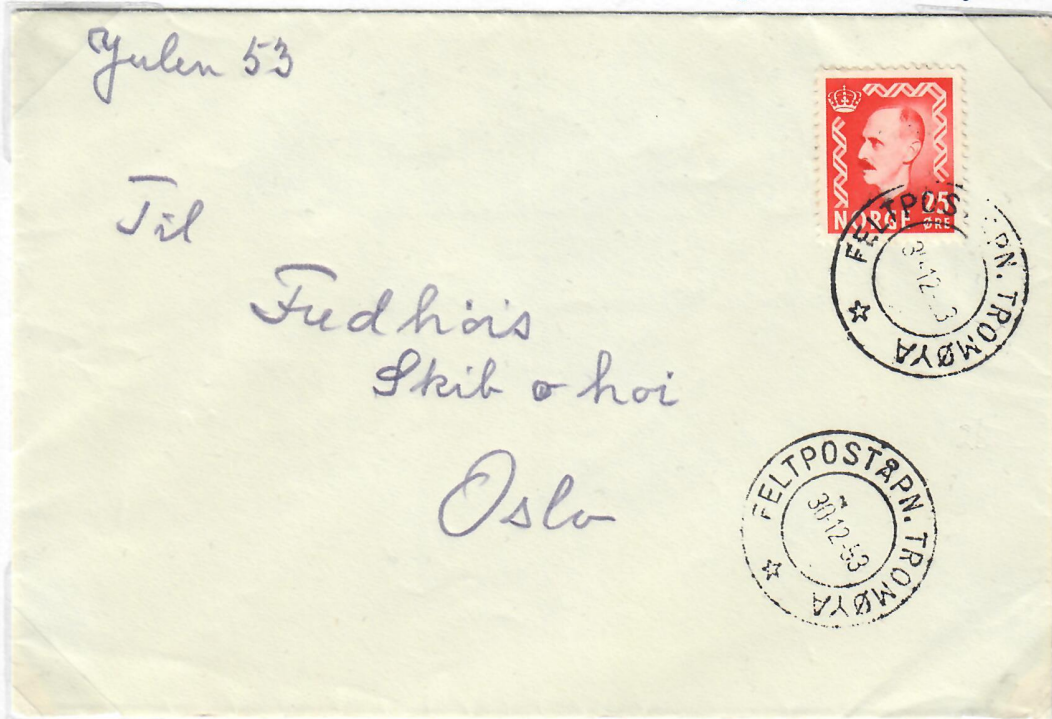 Julen 53
NORGE 25
ØRE
FELTPOSTÅPN. TROMØYA
30-12-53
Til
Fredhöis
Skib o hoi
Oslo
FELTPOSTÅPN. TROMØYA
30-12-53